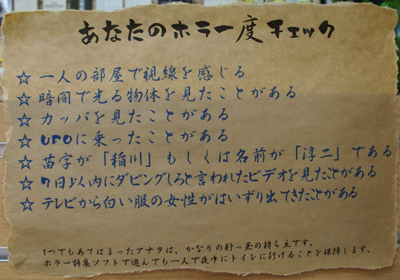 あなたのホラー度チェック
☆ 一人の部屋で視線を感じる
☆ 暗闇で光る物体を見たことがある
☆ カッパを見たことがある
☆ UFOに乗ったことがある
☆ 苗字が「稲川」もしくは名前が「淳二」である
☆ 7日以内にダビングしろと言われたビデオを見たことがある
☆ テレビから白い服の女性がはいずり出てきたことがある
1つでもあてはまったアナタは、かなりの肝っ玉の持ち主です。
ホラー特集ソフトで遊んでも一人で夜中にトイレに行けることを保障します。